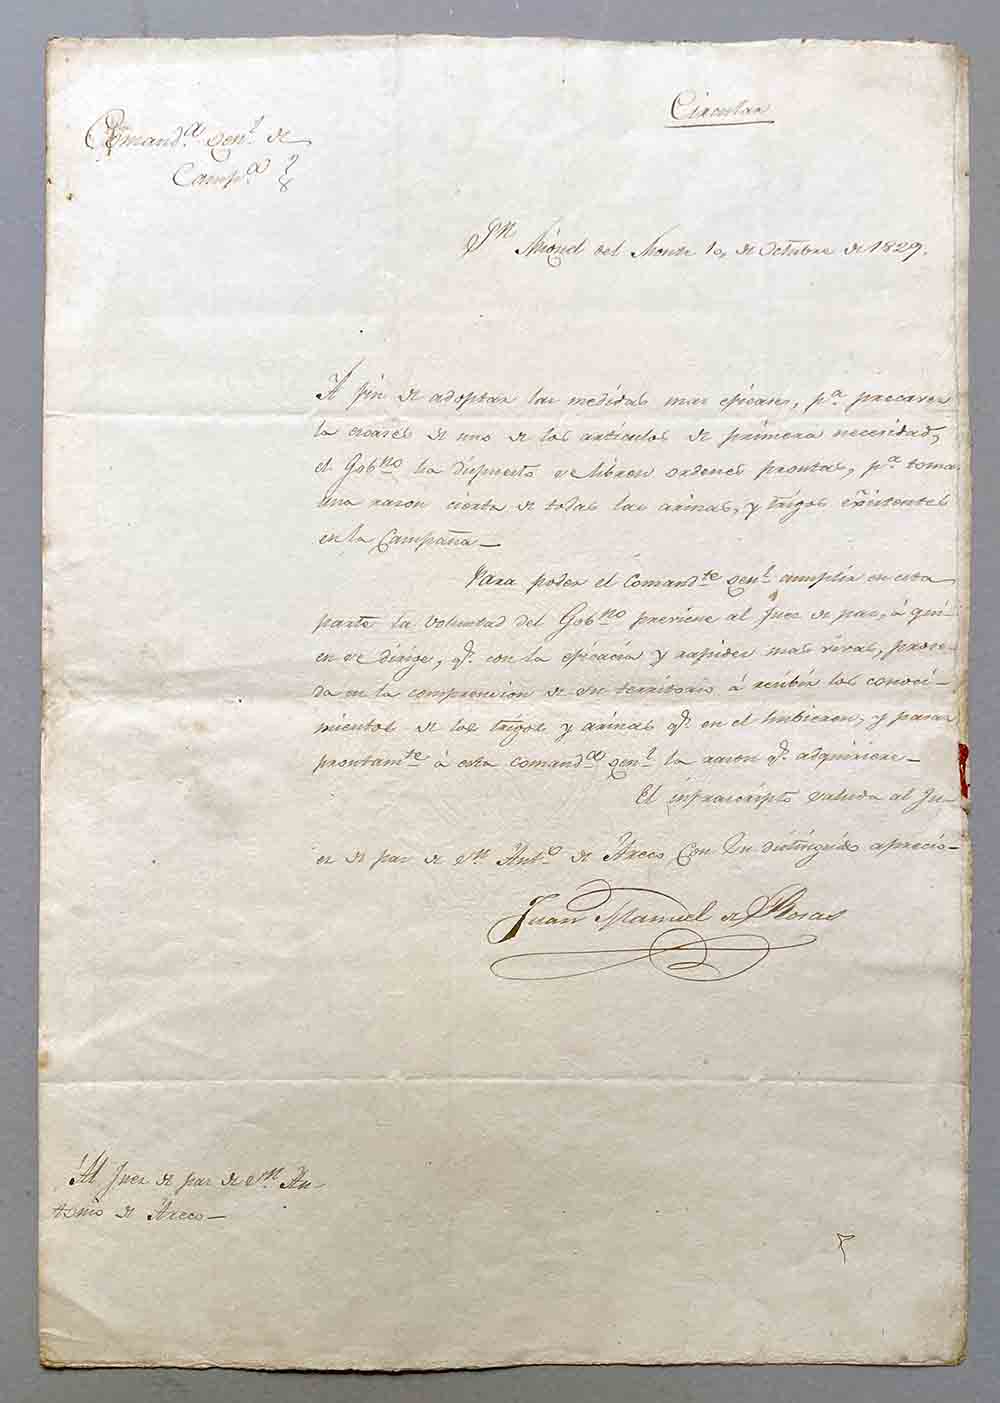 Circular
Comand.ª Gen.l de
Camp.ª
S.n Miguel del Monte 1o, de Octubre de 1829.
A fin de adoptar las medidas mas eficases, p.ª precaver
la escasés de uno de los articulos de primera necesidad,
el Gob.no ha dispuesto se libren ordenes prontas, p.ª tomar
una rason cierta de todas las arinas, y trigos existentes
en la Campaña—
Para poder el Comand.te Gen.l cumplir en esta
parte la voluntad del Gob.no previene al Juez de paz, á qui-
en se dirige, q.e con la eficacia y rapides mas vivas, proce-
da en la comprencion de su territorio á recibir los conoci-
mientos de los trigos y arinas q.e en el hubieren, y pasar
prontam.te á esta comand.ª Gen.l la rason q.e adquiriere—
El infrascripto saluda al Ju-
ez de paz de S.n Ant.o de Areco, con su distinguido aprecio—
Juan Manuel de Rosas
Al Juez de paz de S.n An-
tonio de Areco—